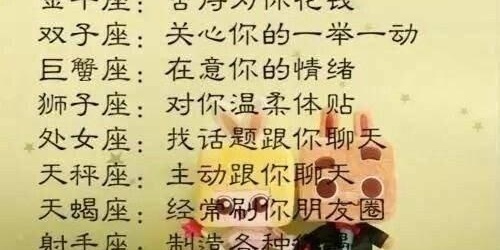 金牛座：舍得为你花钱
双子座：关心你的一举一动
巨蟹座：在意你的情绪
狮子座：对你温柔体贴
处女座：找话题跟你聊天
天秤座：主动跟你聊天
天蝎座：经常刷你朋友圈
射手座：制造各种